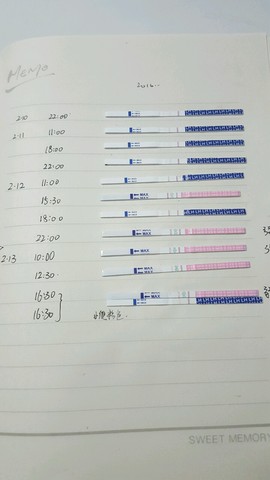 MEMO
2016..
2.10 22:00
2.11 11:00
18:00
22:00
2.12 11:00
15:30
18:00
22:00
2.13 10:00
12:30
16:30
16:30
MAX
MAX
MAX
MAX
MAX
SWEET MEMORY